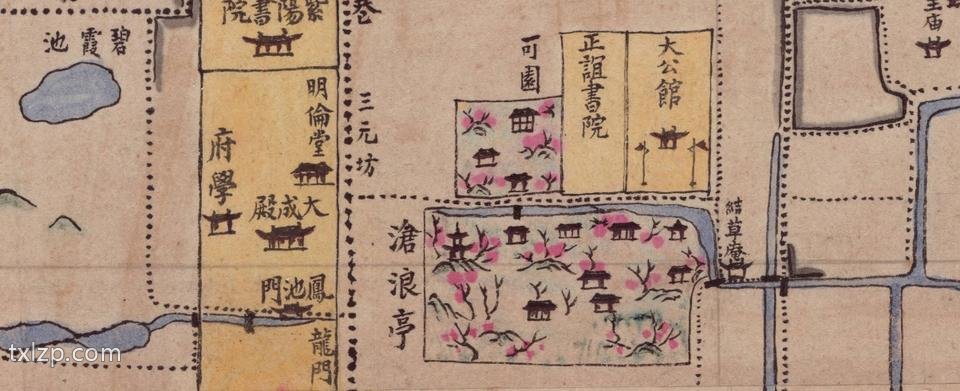 紫陽書院
巷
碧霞池
明倫堂
三元坊
府學
大成殿
鳳池門
龍門
可園
正誼書院
大公館
滄浪亭
結草庵
王庙
txlzp.com